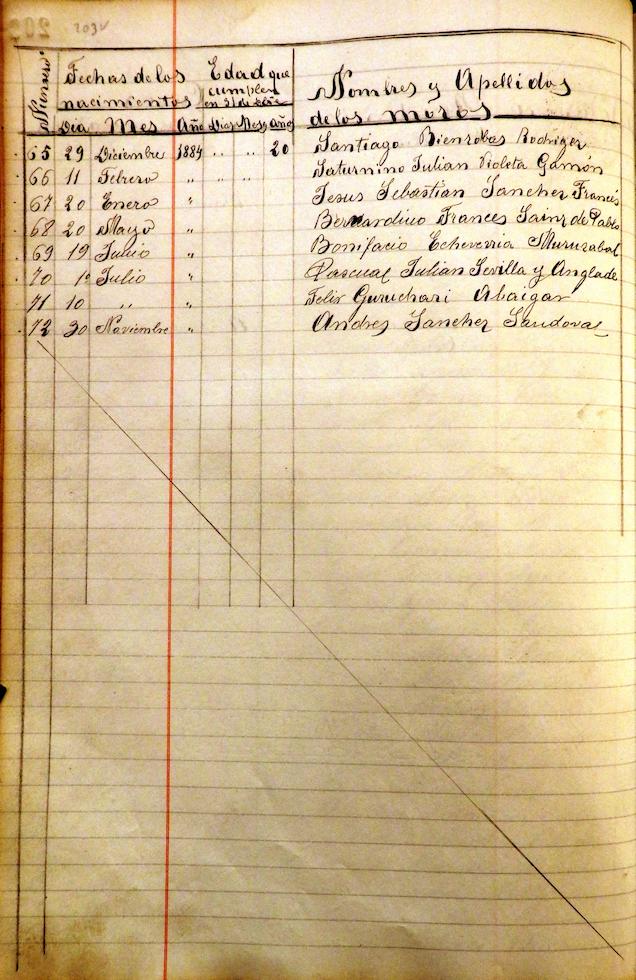 203v
Número
Fechas de los
nacimientos
Edad que
cumplen
en 31 de
Nombres y Apellidos
de los mozos
Día Mes Año Días Meses Años
65 29 Diciembre 1884 " " 20 Santiago Bienzobas Rodriguez
66 11 Febrero " " " Saturnino Julian Violeta Gamón
67 20 Enero " Jesus Sebastian Sanchez Francés
68 20 Mayo " Bernardino Frances Sainz de Pablo
69 19 Junio " Bonifacio Echeverria Muruzabal
70 1º Julio " Pascual Julian Sevilla y Anglade
71 10 " " Felix Guruchari Abaigar
72 30 Noviembre " Andres Sanchez Sandoval